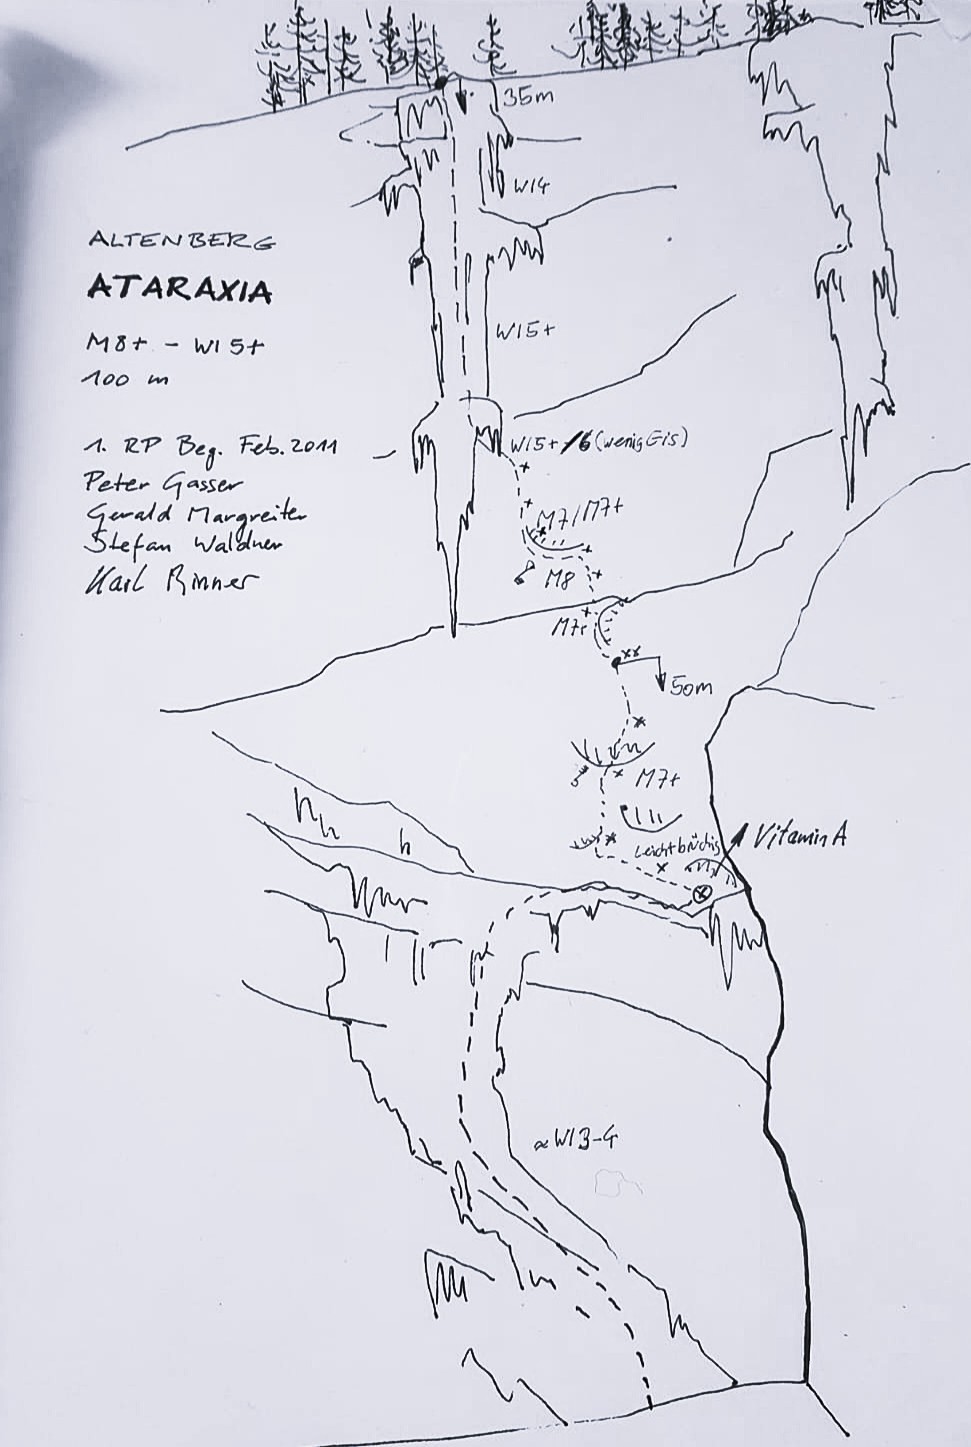 35m
WI4
ALTENBERG
ATARAXIA
M8+ - WI 5+
100 m
WI5+
1. RP Beg. Feb. 2011
Peter Gasser
Gerald Margreiter
Stefan Waldner
Karl Rinner
WI5+/6 (wenig Eis)
M7/M7+
M8
M7+
50m
M7+
leicht brüchig
Vitamin A
≈WI3-4